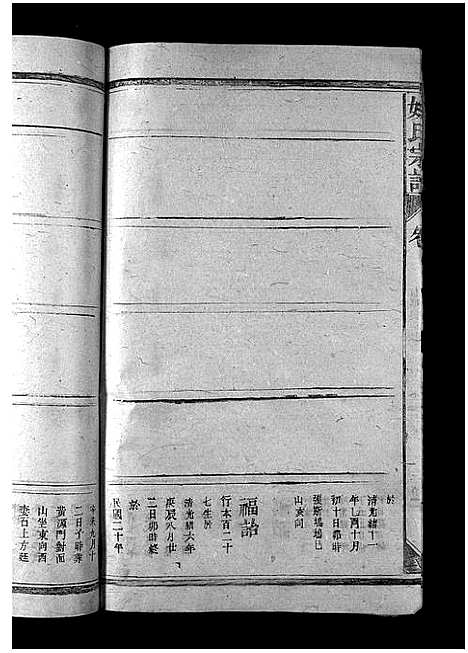 姚氏宗譜
卷
於
清光緒十一
年乙酉十月
初十日卯時
山亥向
福詒
行本百二十
七生於
清光緒六年
庚辰八月廿
三日卯時終
於
民國二十年
辛未九月十
二日子時葬
黃源門對面
山坐東向西
壺石上方廷